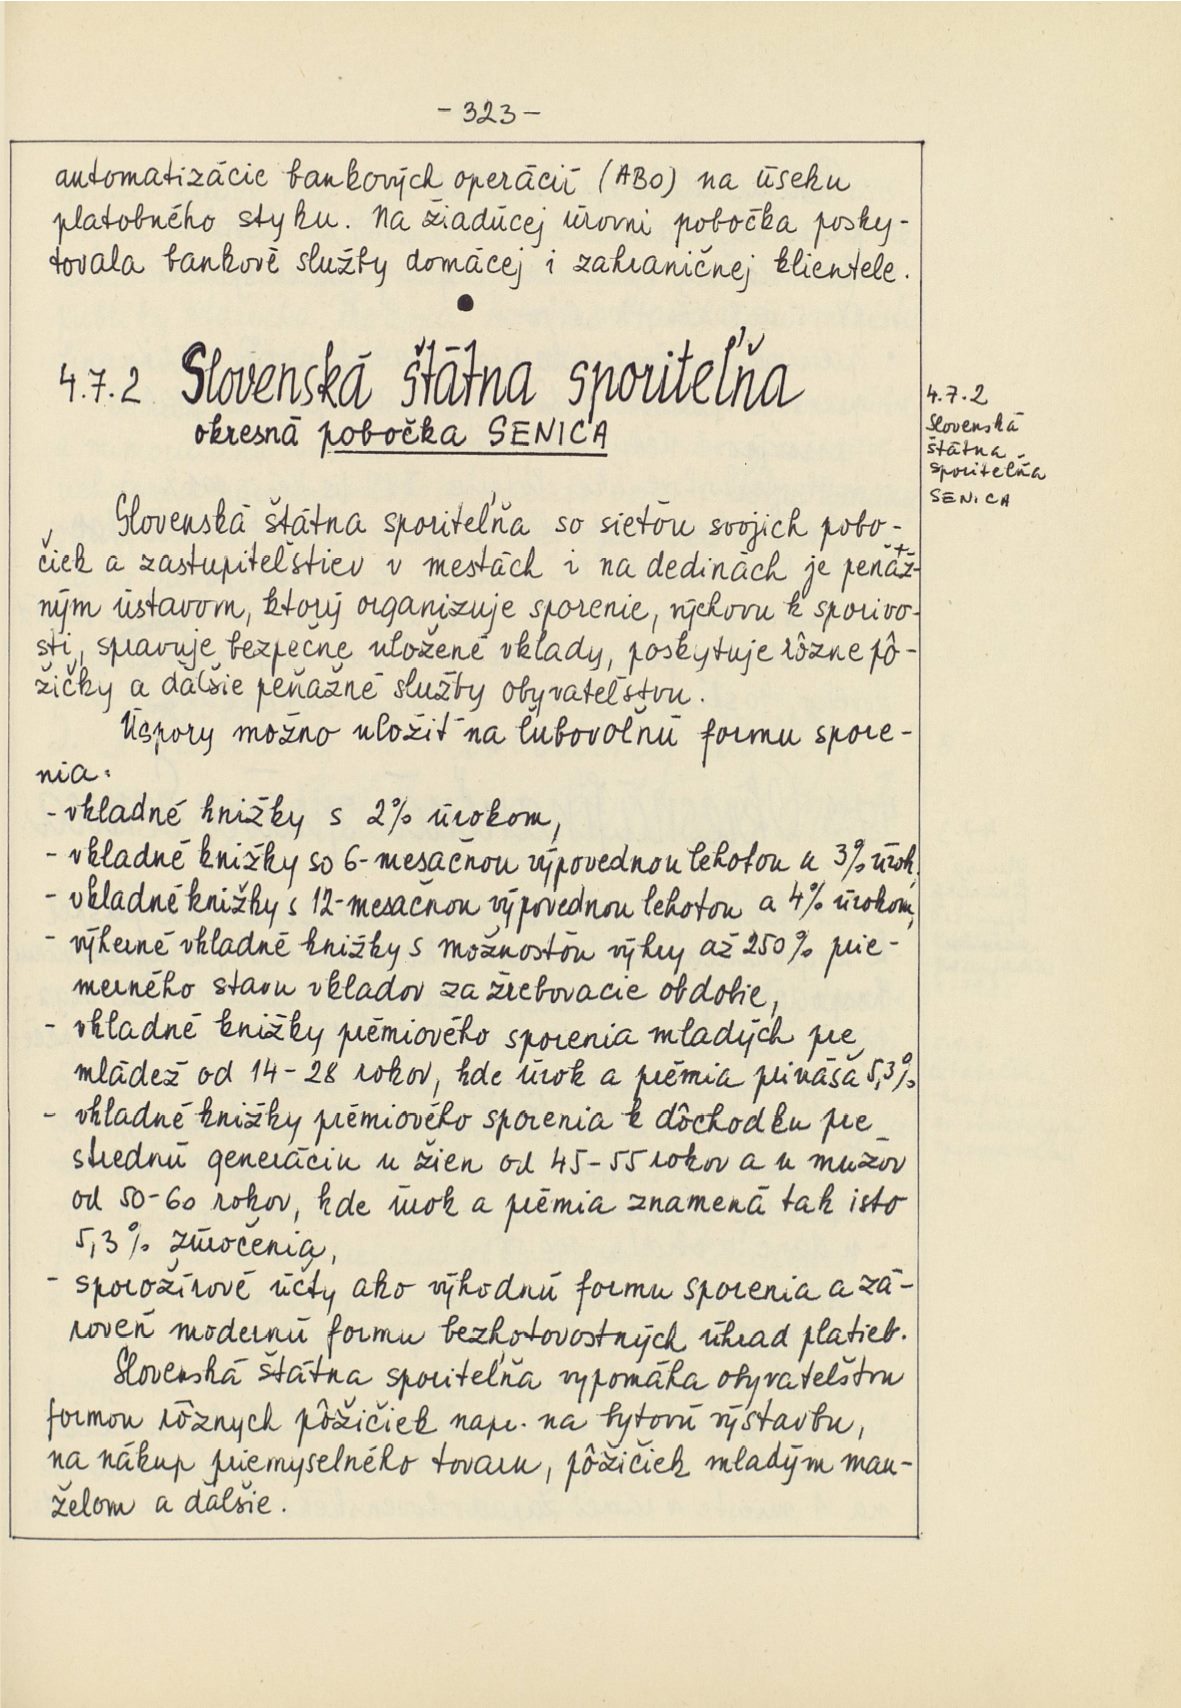 - 323 -
automatizácie bankových operácií (ABO) na úseku
platobného styku. Na žiadúcej úrovni pobočka posky-
tovala bankové služby domácej i zahraničnej klientele.
4.7.2 Slovenská štátna sporiteľňa
okresná pobočka SENICA
4.7.2
Slovenská
štátna
sporiteľňa
SENICA
Slovenská štátna sporiteľňa so sieťou svojich pobo-
čiek a zastupiteľstiev v mestách i na dedinách je peňaž-
ným ústavom, ktorý organizuje sporenie, výchovu k sporivo-
sti, spravuje bezpečne uložené vklady, poskytuje rôzne pô-
žičky a ďalšie peňažné služby obyvateľstvu.
Úspory možno uložiť na ľubovoľnú formu spore-
nia:
- vkladné knižky s 2% úrokom,
- vkladné knižky so 6-mesačnou výpovednou lehotou a 3% úrok,
- vkladné knižky s 12-mesačnou výpovednou lehotou a 4% úrokom,
- výherné vkladné knižky s možnosťou výhry až 250% prie-
merného stavu vkladov za žrebovacie obdobie,
- vkladné knižky prémiového sporenia mladých pre
mládež od 14-28 rokov, kde úrok a prémia prináša 5,3%
- vkladné knižky prémiového sporenia k dôchodku pre
strednú generáciu u žien od 45-55 rokov a u mužov
od 50-60 rokov, kde úrok a prémia znamená tak isto
5,3% zúročenia,
- sporožírové účty ako výhodnú formu sporenia a zá-
roveň modernú formu bezhotovostných úhrad platieb.
Slovenská štátna sporiteľňa vypomáha obyvateľstvu
formou rôznych pôžičiek napr. na bytovú výstavbu,
na nákup priemyselného tovaru, pôžičiek mladým man-
želom a ďalšie.